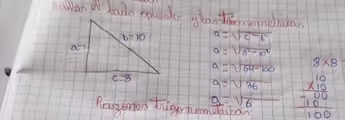 hallan el lado
b=10
a=
c=8
a = √c - b
a = √8² - 10²
a = √64 - 100
a = √36
a = √6
8x8
10
x10
00
10
100
Razones trigonometricas